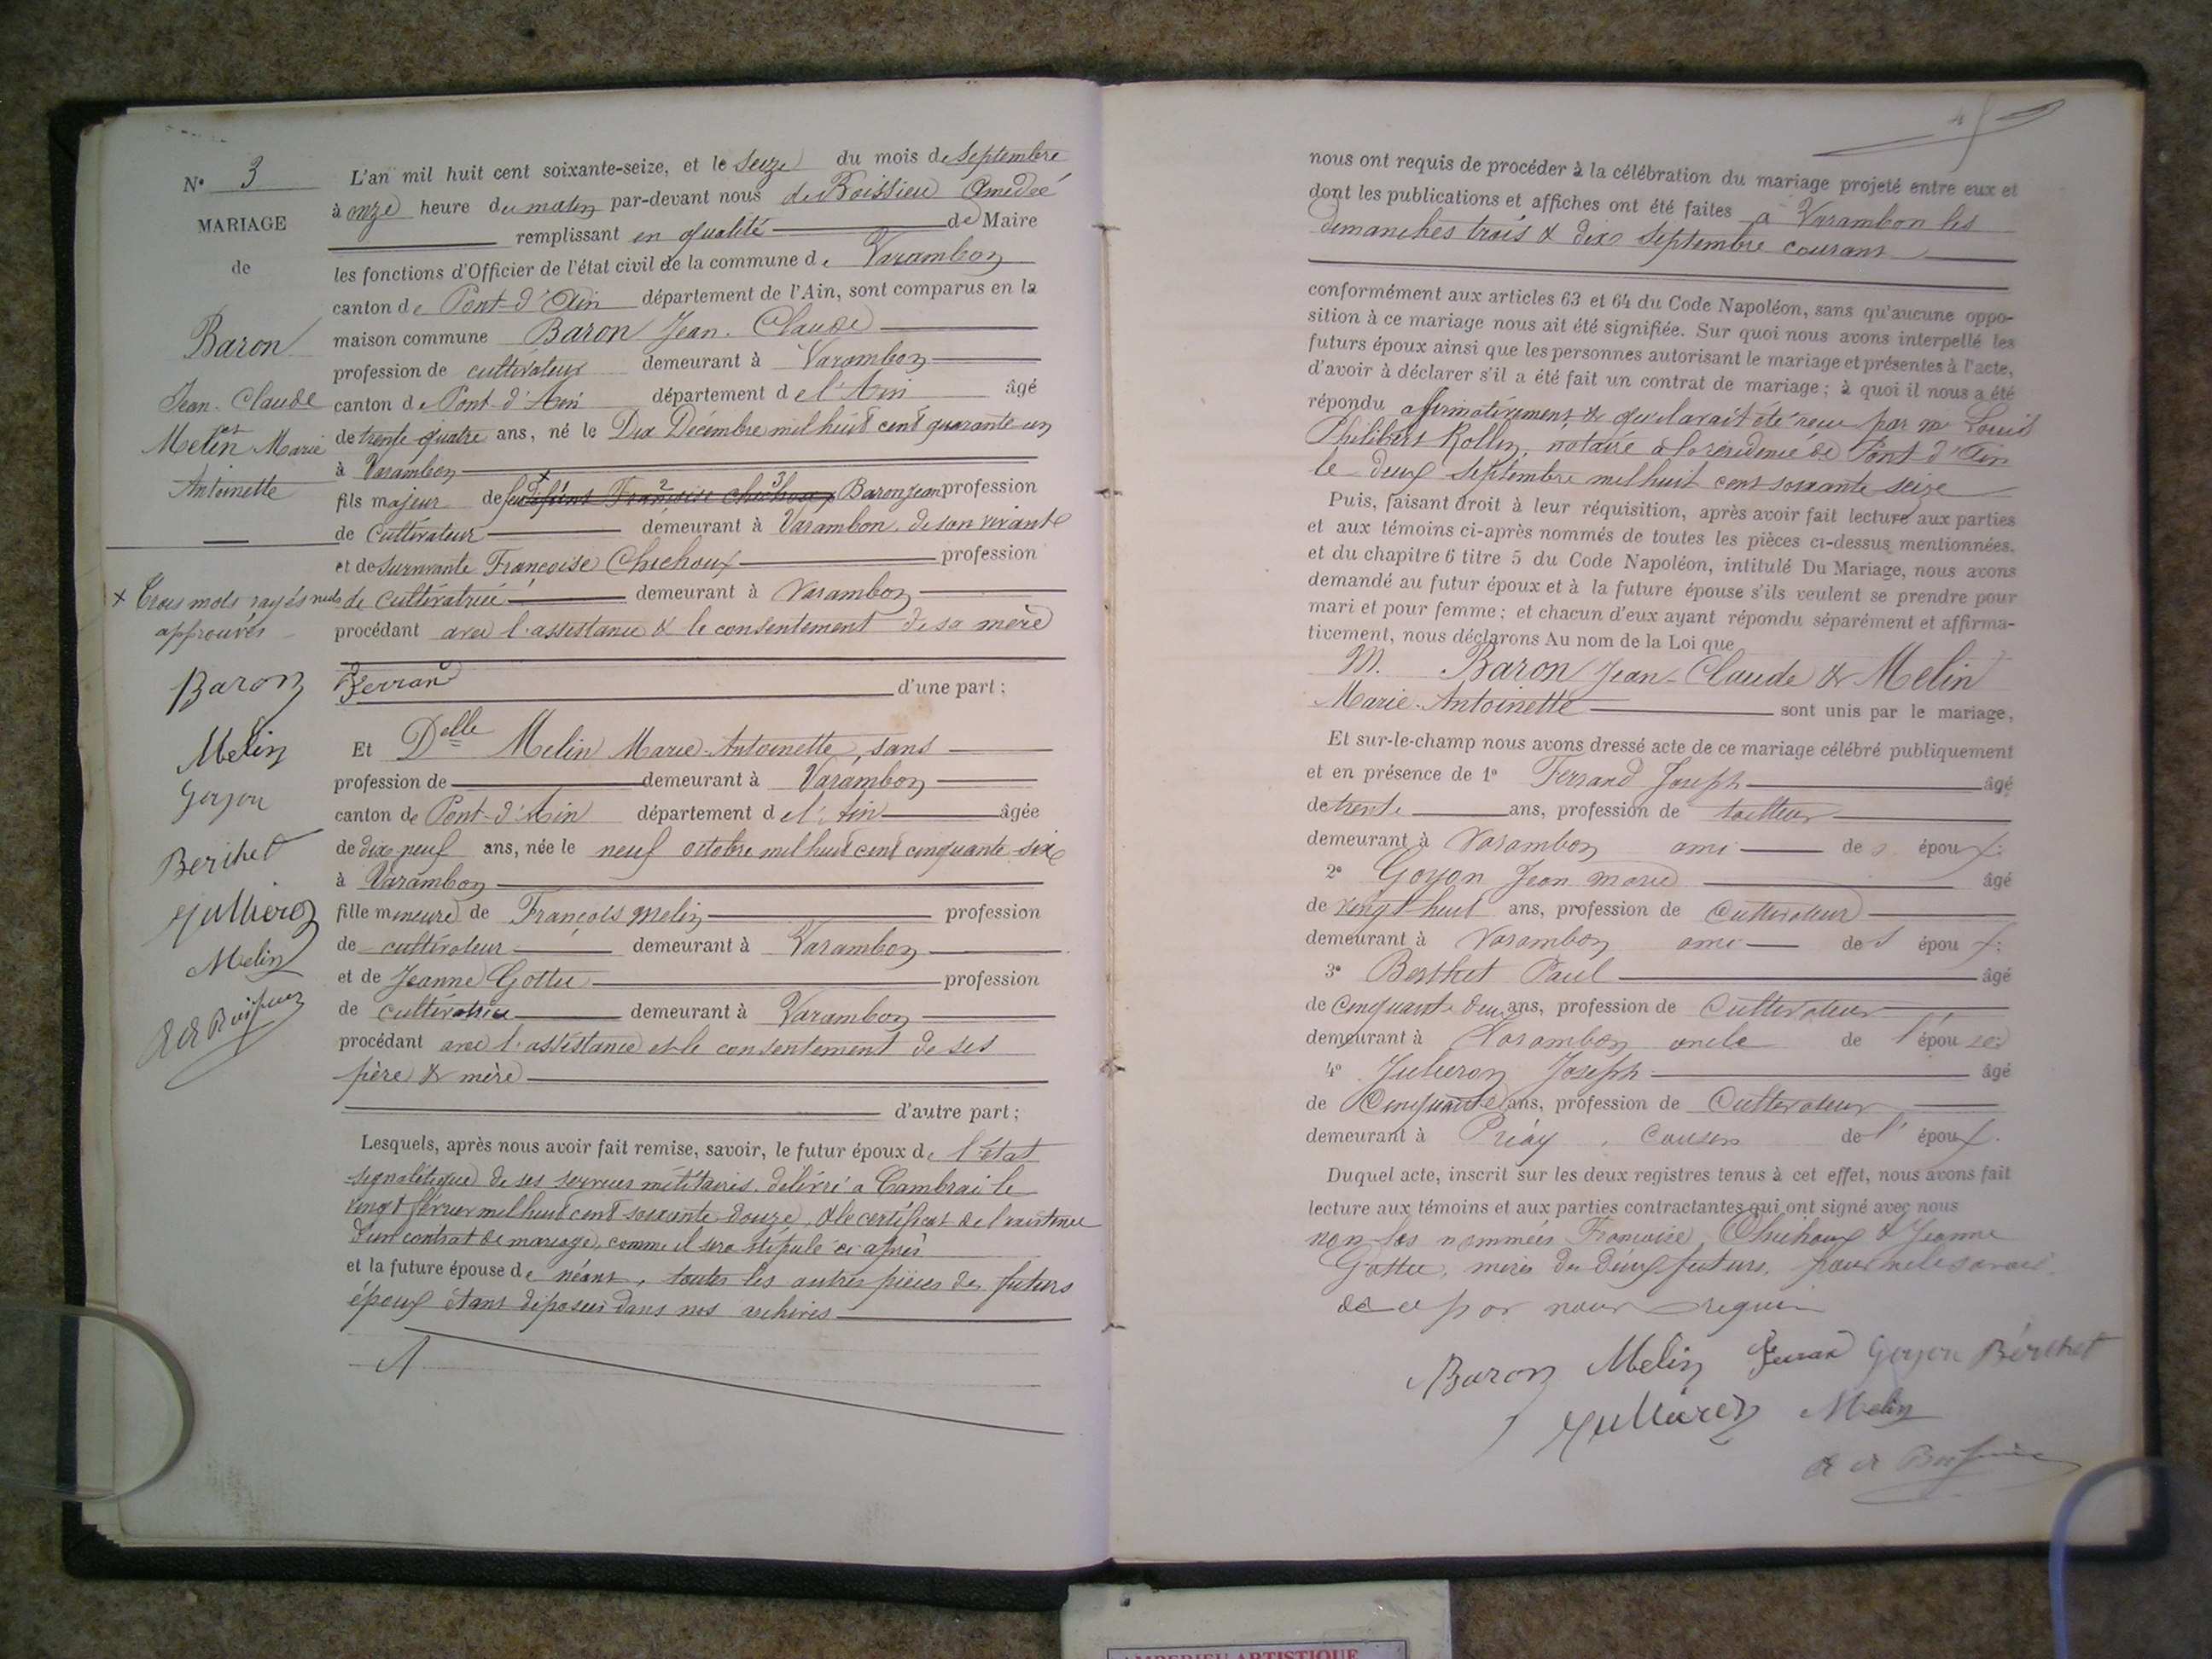 N° 3
MARIAGE
de
Baron
Jean-Claude
et
Melin Marie
Antoinette
x Trois mots rayés nuls
approuvés
Baron
Melin
Goyon
Berthet
Jullieron
Melin
L'an mil huit cent soixante-seize, et le seize du mois de Septembre
à onze heure du matin par-devant nous de Boissieu Amédée
remplissant en qualité de Maire
les fonctions d'Officier de l'état civil de la commune de Varambon
canton de Pont-d'Ain département de l'Ain, sont comparus en la
maison commune Baron Jean-Claude
profession de cultivateur demeurant à Varambon
canton de Pont-d'Ain département de l'Ain âgé
de trente quatre ans, né le Dix Décembre mil huit cent quarante un
à Varambon
fils majeur de feu défunt Françoise Chichoux Baron Jean profession
de cultivateur demeurant à Varambon de son vivant
et de survivante Françoise Chichoux profession
de cultivatrice demeurant à Varambon
procédant avec l'assistance & le consentement de sa mère
Ferrand d'une part ;
Et Delle Melin Marie-Antoinette, sans
profession de demeurant à Varambon
canton de Pont-d'Ain département de l'Ain âgée
de dix-neuf ans, née le neuf octobre mil huit cent cinquante-six
à Varambon
fille mineure de François Melin profession
de cultivateur demeurant à Varambon
et de Jeanne Gottu profession
de cultivatrice demeurant à Varambon
procédant avec l'assistance et le consentement de ses
père & mère
d'autre part ;
Lesquels, après nous avoir fait remise, savoir, le futur époux de l'état
signalétique de ses services militaires délivré a Cambrai le
vingt février mil huit cent soixante douze, & le certificat de l'existence
d'un contrat de mariage, comme il sera stipulé ci après
et la future épouse de néant, toutes les autres pièces des futurs
époux étant déposées dans nos archives
nous ont requis de procéder à la célébration du mariage projeté entre eux et
dont les publications et affiches ont été faites à Varambon les
dimanches trois & dix septembre courant
conformément aux articles 63 et 64 du Code Napoléon, sans qu'aucune oppo-
sition à ce mariage nous ait été signifiée. Sur quoi nous avons interpellé les
futurs époux ainsi que les personnes autorisant le mariage et présentes à l'acte,
d'avoir à déclarer s'il a été fait un contrat de mariage ; à quoi il nous a été
répondu affirmativement & qu'il avait été reçu par me Louis
Philibert Rollin, notaire à la résidence de Pont d'Ain
le deux septembre mil huit cent soixante seize
Puis, faisant droit à leur réquisition, après avoir fait lecture aux parties
et aux témoins ci-après nommés de toutes les pièces ci-dessus mentionnées,
et du chapitre 6 titre 5 du Code Napoléon, intitulé Du Mariage, nous avons
demandé au futur époux et à la future épouse s'ils veulent se prendre pour
mari et pour femme ; et chacun d'eux ayant répondu séparément et affirma-
tivement, nous déclarons Au nom de la Loi que
M. Baron Jean-Claude & Melin
Marie-Antoinette sont unis par le mariage,
Et sur-le-champ nous avons dressé acte de ce mariage célébré publiquement
et en présence de 1° Ferrand Joseph âgé
de trente ans, profession de tailleur
demeurant à Varambon ami des époux :
2° Goyon Jean Marie âgé
de vingt huit ans, profession de Cultivateur
demeurant à Varambon ami des époux :
3° Berthet Paul âgé
de Cinquante deux ans, profession de Cultivateur
demeurant à Varambon oncle de l'épouse :
4° Julieron Joseph âgé
de Cinquante ans, profession de Cultivateur
demeurant à Priay, Cousin de l'époux.
Duquel acte, inscrit sur les deux registres tenus à cet effet, nous avons fait
lecture aux témoins et aux parties contractantes qui ont signé avec nous
non les nommées Françoise Chichoux & Jeanne
Gottu, mères des deux futurs, pour ne le savoir
de ce par nous requis
Baron Melin Ferrand Goyon Berthet
Jullieron Melin
A de Boissieu
AMBERIEU ARTISTIQUE